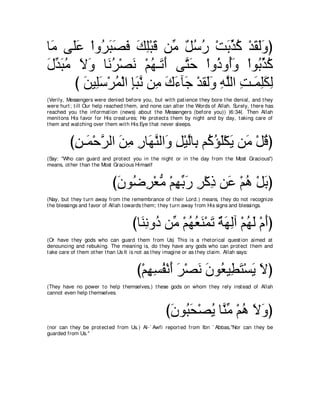 (وَلَقَدْ كُذِّبَتْ رُسُلٌ مِّن قَبْلِكَ فَصَبَرُواْ عَلَى مَا
كُذِّبُواْ وَأُوذُواْ حَتَّى أَتَـهُمْ نَصْرُنَا وَلاَ مُبَدِّلَ
لِكَلِمَـتِ اللَّهِ وَلَقدْ جَآءَكَ مِن نَّبَإِ الْمُرْسَلِينَ )
(Verily, Messengers were denied before you, but with patience they bore the denial, and they
were hurt; till Our help reached them, and none can alter the Words of Allah. Surely, there has
reached you the information (news) about the Messengers (before you)) [6:34]. Then Allah
mentions His favor for His creatures; He protects them by night and by day, taking care of
them and watching over them with His Eye that never sleeps.
(قُلْ مَن يَكْلَؤُكُم بِالَّيْلِ وَالنَّهَارِ مِنَ الرَّحْمَـنِ)
(Say: "Who can guard and protect you in the night or in the day from the Most Gracious")
means, other than the Most Gracious Himself
(بَلْ هُمْ عَن ذِكْرِ رَبِّهِمْ مُّعْرِضُونَ)
(Nay, but they turn away from the remembrance of their Lord.) means, they do not recognize
the blessings and favor of Allah towards them; they turn away from His signs and blessings.
(أَمْ لَهُمْ آلِهَةٌ تَمْنَعُهُمْ مِّن دُونِنَا)
(Or have they gods who can guard them from Us) This is a rhetorical question aimed at
denouncing and rebuking. The meaning is, do they have any gods who can protect them and
take care of them other than Us It is not as they imagine or as they claim. Allah says:
(لاَ يَسْتَطِيعُونَ نَصْرَ أَنْفُسِهِمْ)
(They have no power to help themselves,) these gods on whom they rely instead of Allah
cannot even help themselves.
(وَلاَ هُمْ مِّنَّا يُصْحَبُونَ)
(nor can they be protected from Us.) Al-`Awfi reported from Ibn `Abbas,"Nor can they be
guarded from Us."